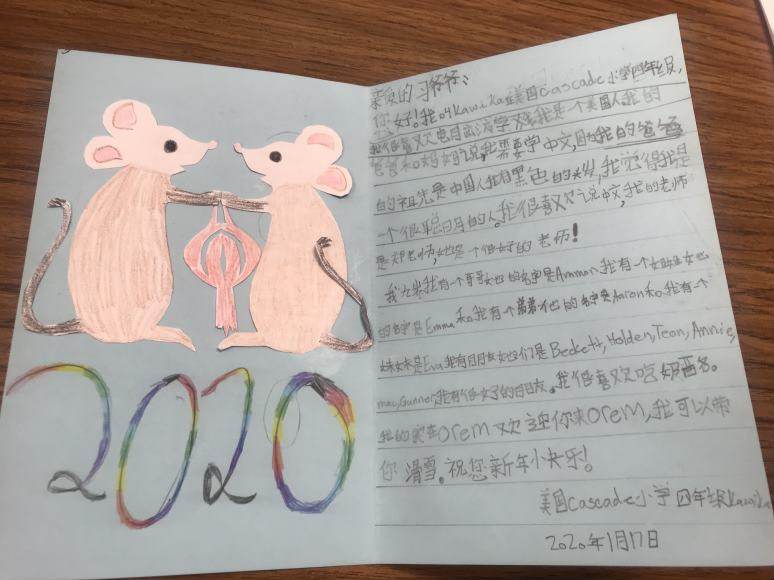 2020
亲爱的习爷爷:
您好!我叫Kawika在美国Cascade小学四年级,
我很喜欢电目玩游学戏我是一个美国人我的
爸爸和妈妈说,我需要学中文,因为我的爸爸
的祖先是中国人我有黑色的头发,我觉得我是
一个很聪明的人。我很喜欢说中文,我的老师
是郑老师,她是一个很好的老师!
我九岁我有一个哥哥他的名字是Ammon我有一个姐姐她
的名字是Emma和我有一个弟弟他的名字是Aaron和我有一个
妹妹是Eva我有朋友她们是Beckett, Holden, Teon, Annie,
mac, Gunner,我有很好的朋友。我很喜欢吃奶酪。
我的家在Orem欢迎你来Orem,我可以带
你滑雪。祝您新年快乐!
美国Cascade小学四年级Kawika
2020年1月17日